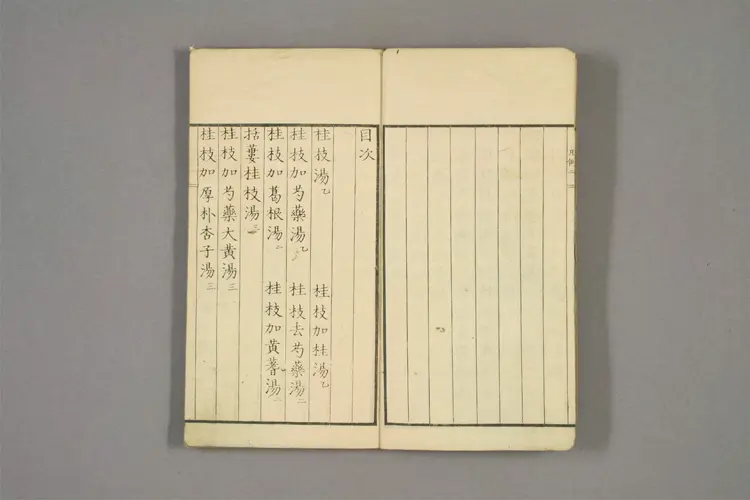 目次
桂枝湯乙 桂枝加桂湯乙
桂枝加芍藥湯乙 桂枝去芍藥湯二
桂枝加葛根湯二 桂枝加黃蓍湯二
括蔞桂枝湯三
桂枝加芍藥大黃湯三
桂枝加厚朴杏子湯三